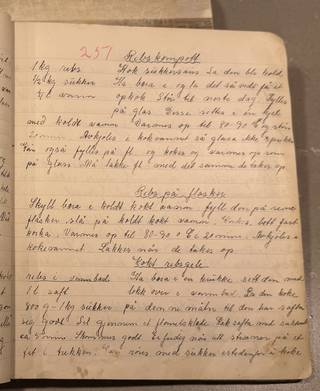 257 Ribskompott
1 kg ribs Kok sukkersaus La den bli kold
1/2 kg sukker Ha bæra i og la det så vidt på et
vann opkok Stå til næste dag. Fylles
på glas. Disse settes i en gryte
med koldt vann Varmes op til 80-90 °C og står
20 min. Avkjøles i kokvannet så glasa ikke sprekker
Kan også fylles på fl. og kokes og varmes op som
på glass. Må lakkes fl. med det samme de takes op
Ribs på flasker
Skyll bæra i koldt kokt vann fyll dem på rene
flasker slå på koldt kokt vann bott fast
korka. Varmes op til 80-90 °C i 20 min. Avkjøles i
kokevannet Lakkes når de takes op
Kokt ribsgele
ribs i vannbad Ha bæra i en krukke sett den med
1 l. saft lokk over i vannbad La den koke
800 g - 1 kg sukker på den måten til den har saftet
seg godt. Sil gjennem et flonelsklæde Kok safta med sukkeret
ca 5 min. Skummes godt
fat i trekken. med sukker istedenfor å koke